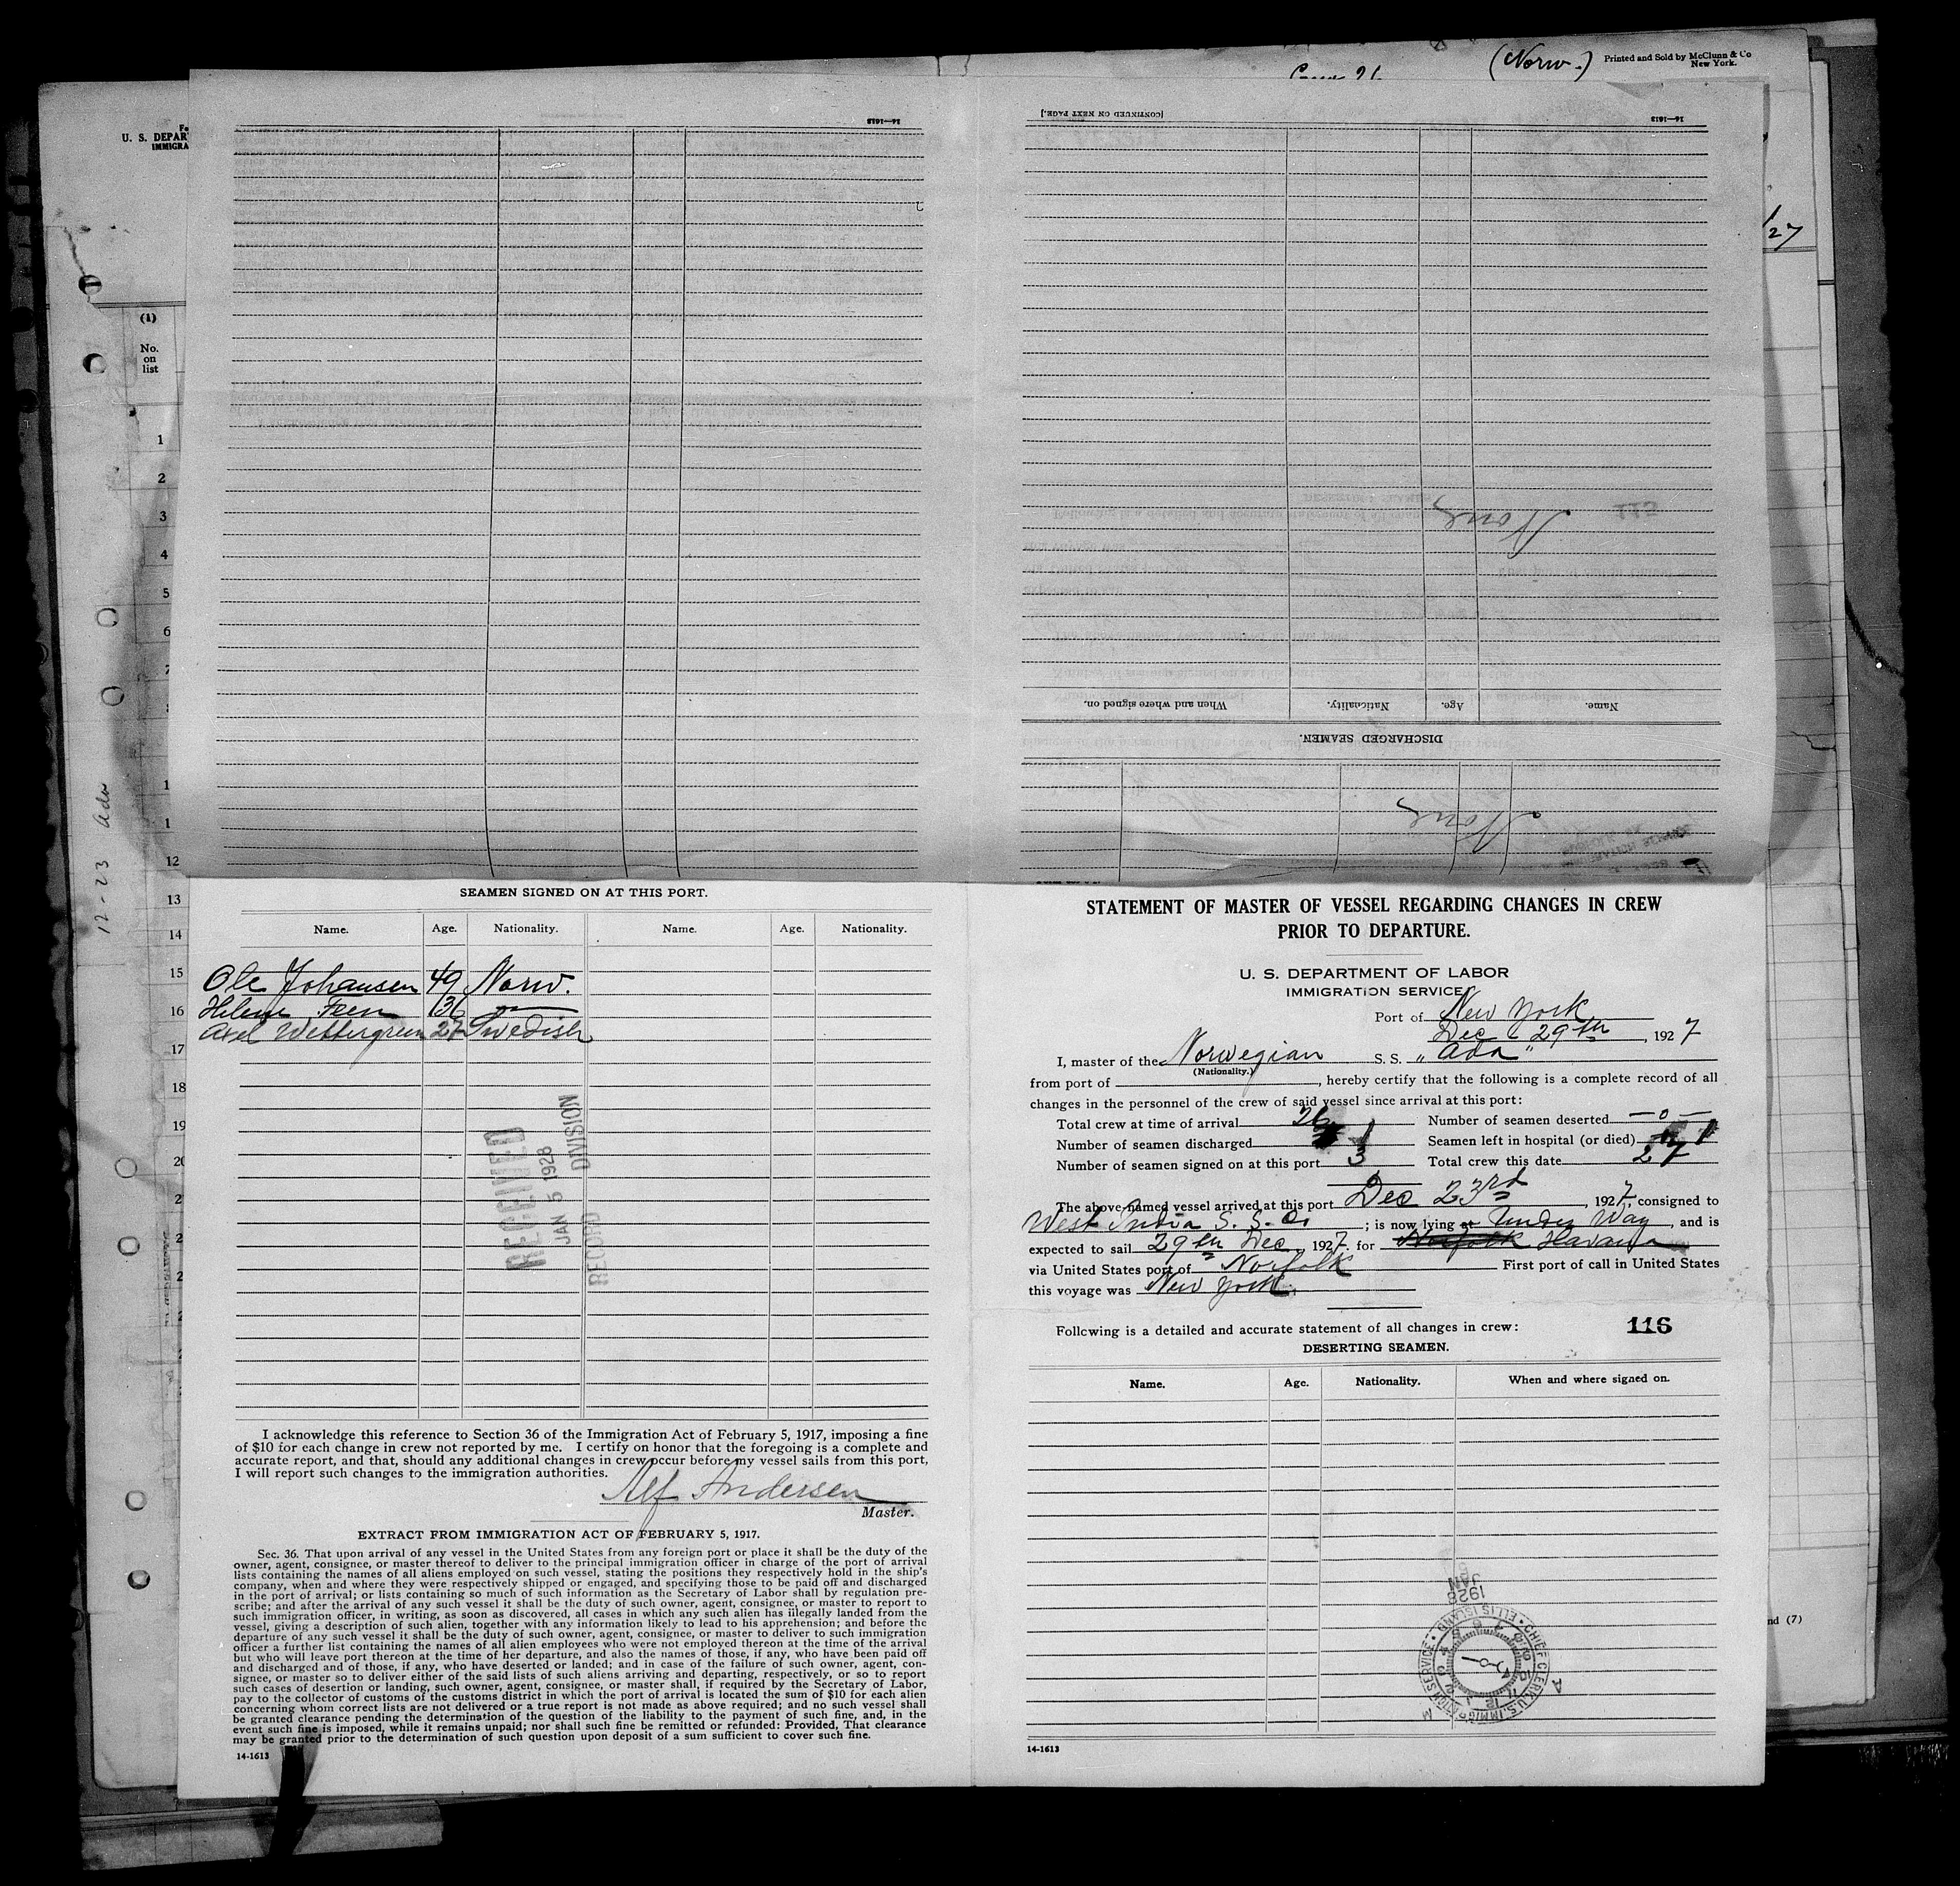 (Norw.)
Printed and Sold by McClunn & Co
New York.
U. S. DEPAR
IMMIGRA
14—1613
[CONTINUED ON NEXT PAGE.]
14—1613
/27
(1)
No.
on
list
1
2
3
4
5
6
12
13
14
15
16
17
18
19
12-23 Ada
None
115
When and where signed on.
Nationality.
Age.
Name.
DISCHARGED SEAMEN.
None
SEAMEN SIGNED ON AT THIS PORT.
Name. Age. Nationality. Name. Age. Nationality.
Ole Johansen 49 Norw.
Helene Feen 36 —
Axel Wettergreen 27 Swedish
RECEIVED
JAN 5 1928
RECORD DIVISION
I acknowledge this reference to Section 36 of the Immigration Act of February 5, 1917, imposing a fine
of $10 for each change in crew not reported by me. I certify on honor that the foregoing is a complete and
accurate report, and that, should any additional changes in crew occur before my vessel sails from this port,
I will report such changes to the immigration authorities.
Alf Andersen
Master.
EXTRACT FROM IMMIGRATION ACT OF FEBRUARY 5, 1917.
Sec. 36. That upon arrival of any vessel in the United States from any foreign port or place it shall be the duty of the
owner, agent, consignee, or master thereof to deliver to the principal immigration officer in charge of the port of arrival
lists containing the names of all aliens employed on such vessel, stating the positions they respectively hold in the ship's
company, when and where they were respectively shipped or engaged, and specifying those to be paid off and discharged
in the port of arrival; or lists containing so much of such information as the Secretary of Labor shall by regulation pre-
scribe; and after the arrival of any such vessel it shall be the duty of such owner, agent, consignee, or master to report to
such immigration officer, in writing, as soon as discovered, all cases in which any such alien has illegally landed from the
vessel, giving a description of such alien, together with any information likely to lead to his apprehension; and before the
departure of any such vessel it shall be the duty of such owner, agent, consignee, or master to deliver to such immigration
officer a further list containing the names of all alien employees who were not employed thereon at the time of the arrival
but who will leave port thereon at the time of her departure, and also the names of those, if any, who have been paid off
and discharged and of those, if any, who have deserted or landed; and in case of the failure of such owner, agent, con-
signee, or master so to deliver either of the said lists of such aliens arriving and departing, respectively, or so to report
such cases of desertion or landing, such owner, agent, consignee, or master shall, if required by the Secretary of Labor,
pay to the collector of customs of the customs district in which the port of arrival is located the sum of $10 for each alien
concerning whom correct lists are not delivered or a true report is not made as above required; and no such vessel shall
be granted clearance pending the determination of the question of the liability to the payment of such fine, and, in the
event such fine is imposed, while it remains unpaid; nor shall such fine be remitted or refunded: Provided, That clearance
may be granted prior to the determination of such question upon deposit of a sum sufficient to cover such fine.
14-1613
STATEMENT OF MASTER OF VESSEL REGARDING CHANGES IN CREW
PRIOR TO DEPARTURE.
U. S. DEPARTMENT OF LABOR
IMMIGRATION SERVICE
Port of New York
Dec 29th, 1927
I, master of the Norwegian S. S. "Ada"
(Nationality.)
from port of , hereby certify that the following is a complete record of all
changes in the personnel of the crew of said vessel since arrival at this port:
Total crew at time of arrival 26 Number of seamen deserted —0—
Number of seamen discharged 1 Seamen left in hospital (or died) 1
Number of seamen signed on at this port 3 Total crew this date 27
The above-named vessel arrived at this port Dec 23rd, 1927, consigned to
West India S. S. Co. ; is now lying at Under Way, and is
expected to sail 29th Dec, 1927. for Norfolk Havana
via United States port of Norfolk First port of call in United States
this voyage was New York.
Following is a detailed and accurate statement of all changes in crew: 116
DESERTING SEAMEN.
Name. Age. Nationality. When and where signed on.
JAN 5 1928
CHIEF CLERK U. S. IMMIGRATION SERVICE · ELLIS ISLAND
nd (7)
14-1613